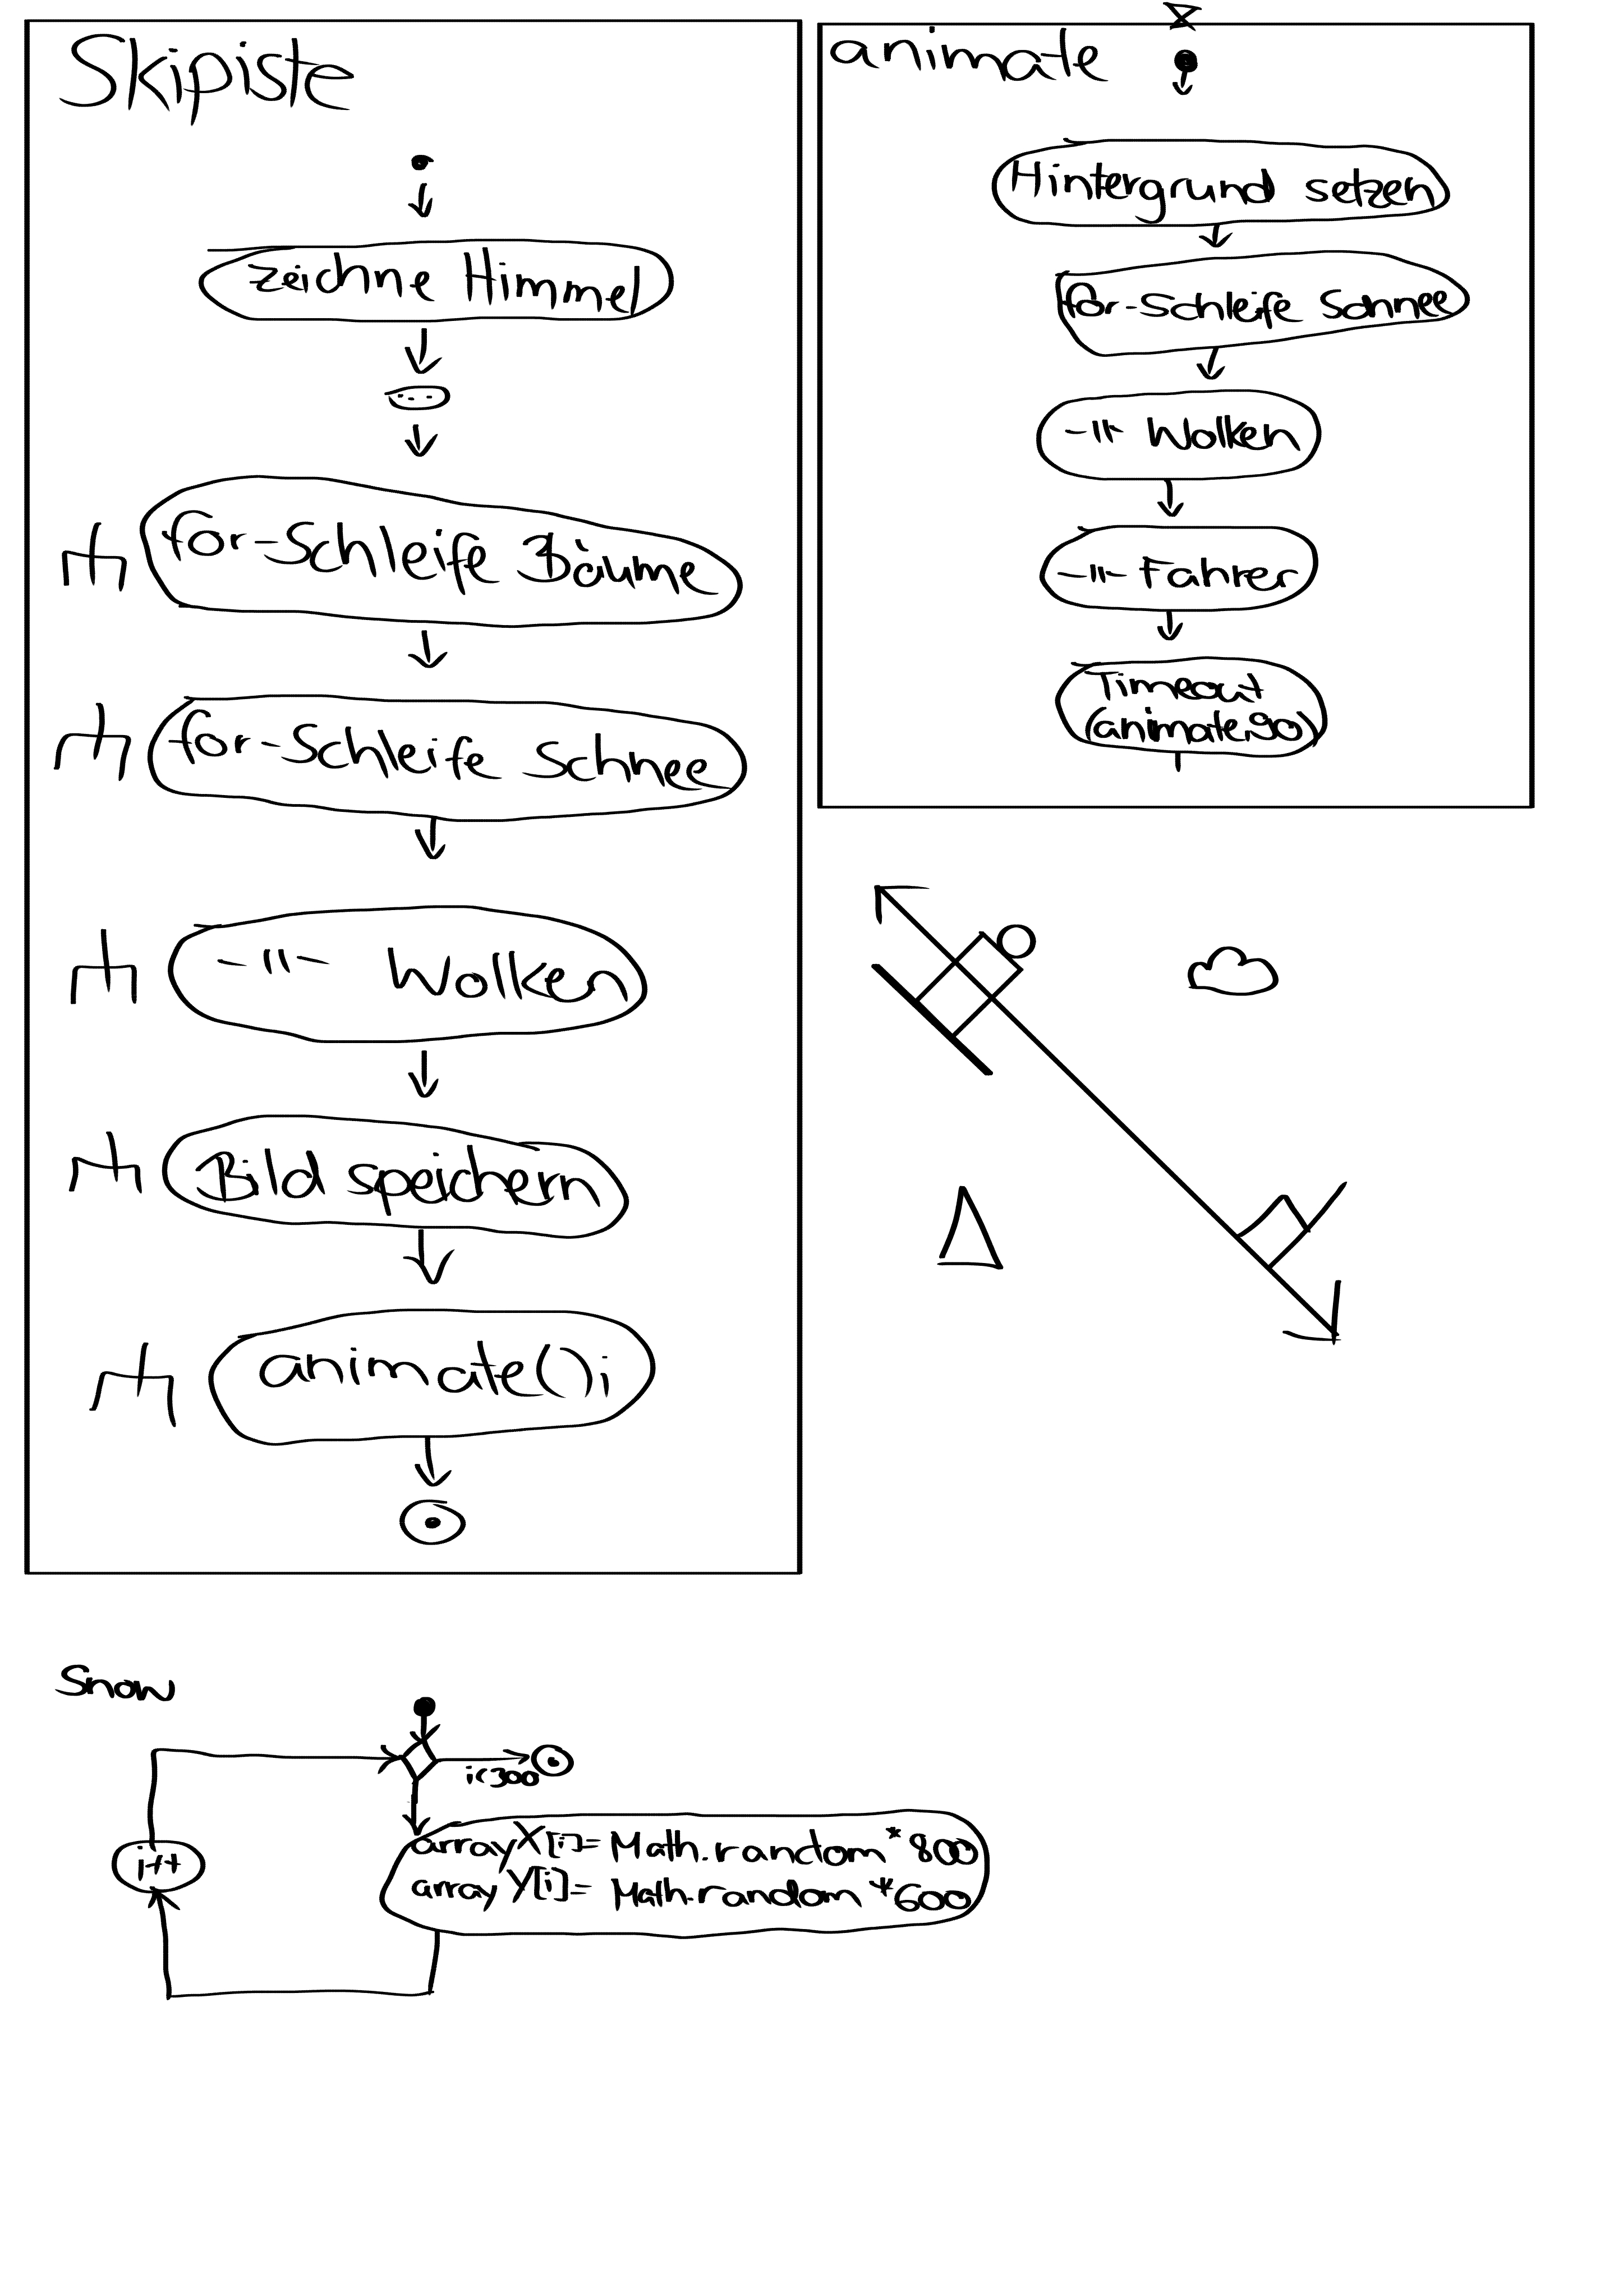 Skipiste
zeichne Himmel
...
for-Schleife Bäume
for-Schleife Schnee
-"- Wolken
Bild speichern
animate();
animate
Hintergrund setzen
for-Schleife Schnee
-"- Wolken
-"- Fahrer
Timeout
(animate,90)
Snow
i<300
i++
arrayX[i]= Math.random*800
arrayY[i]= Math.random*600